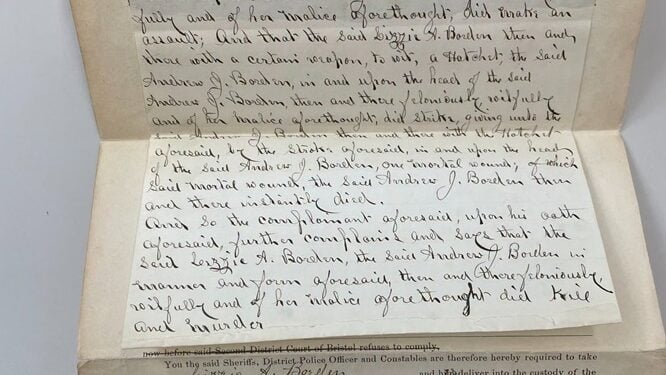 fully and of her malice aforethought, did make an
assault; And that the said Lizzie A. Borden then and
there with a certain weapon, to wit, a Hatchet, the said
Andrew J. Borden, in and upon the head of the said
Andrew J. Borden, then and there feloniously wilfully
and of her malice aforethought, did strike, giving unto the
said Andrew J. Borden then and there with the Hatchet
aforesaid, by the stroke aforesaid, in and upon the head
of the said Andrew J. Borden, one mortal wound; of which
said mortal wound, the said Andrew J. Borden then
and there instantly died.
And so the complainant aforesaid, upon his oath
aforesaid, further complains and says that the
said Lizzie A. Borden, the said Andrew J. Borden in
manner and form aforesaid, then and there feloniously,
wilfully and of her malice aforethought did kill
and murder
now before said Second District Court of Bristol refuses to comply,
You the said Sheriffs, District Police Officer and Constables are therefore hereby required to take
Lizzie A. Borden and deliver into the custody of the